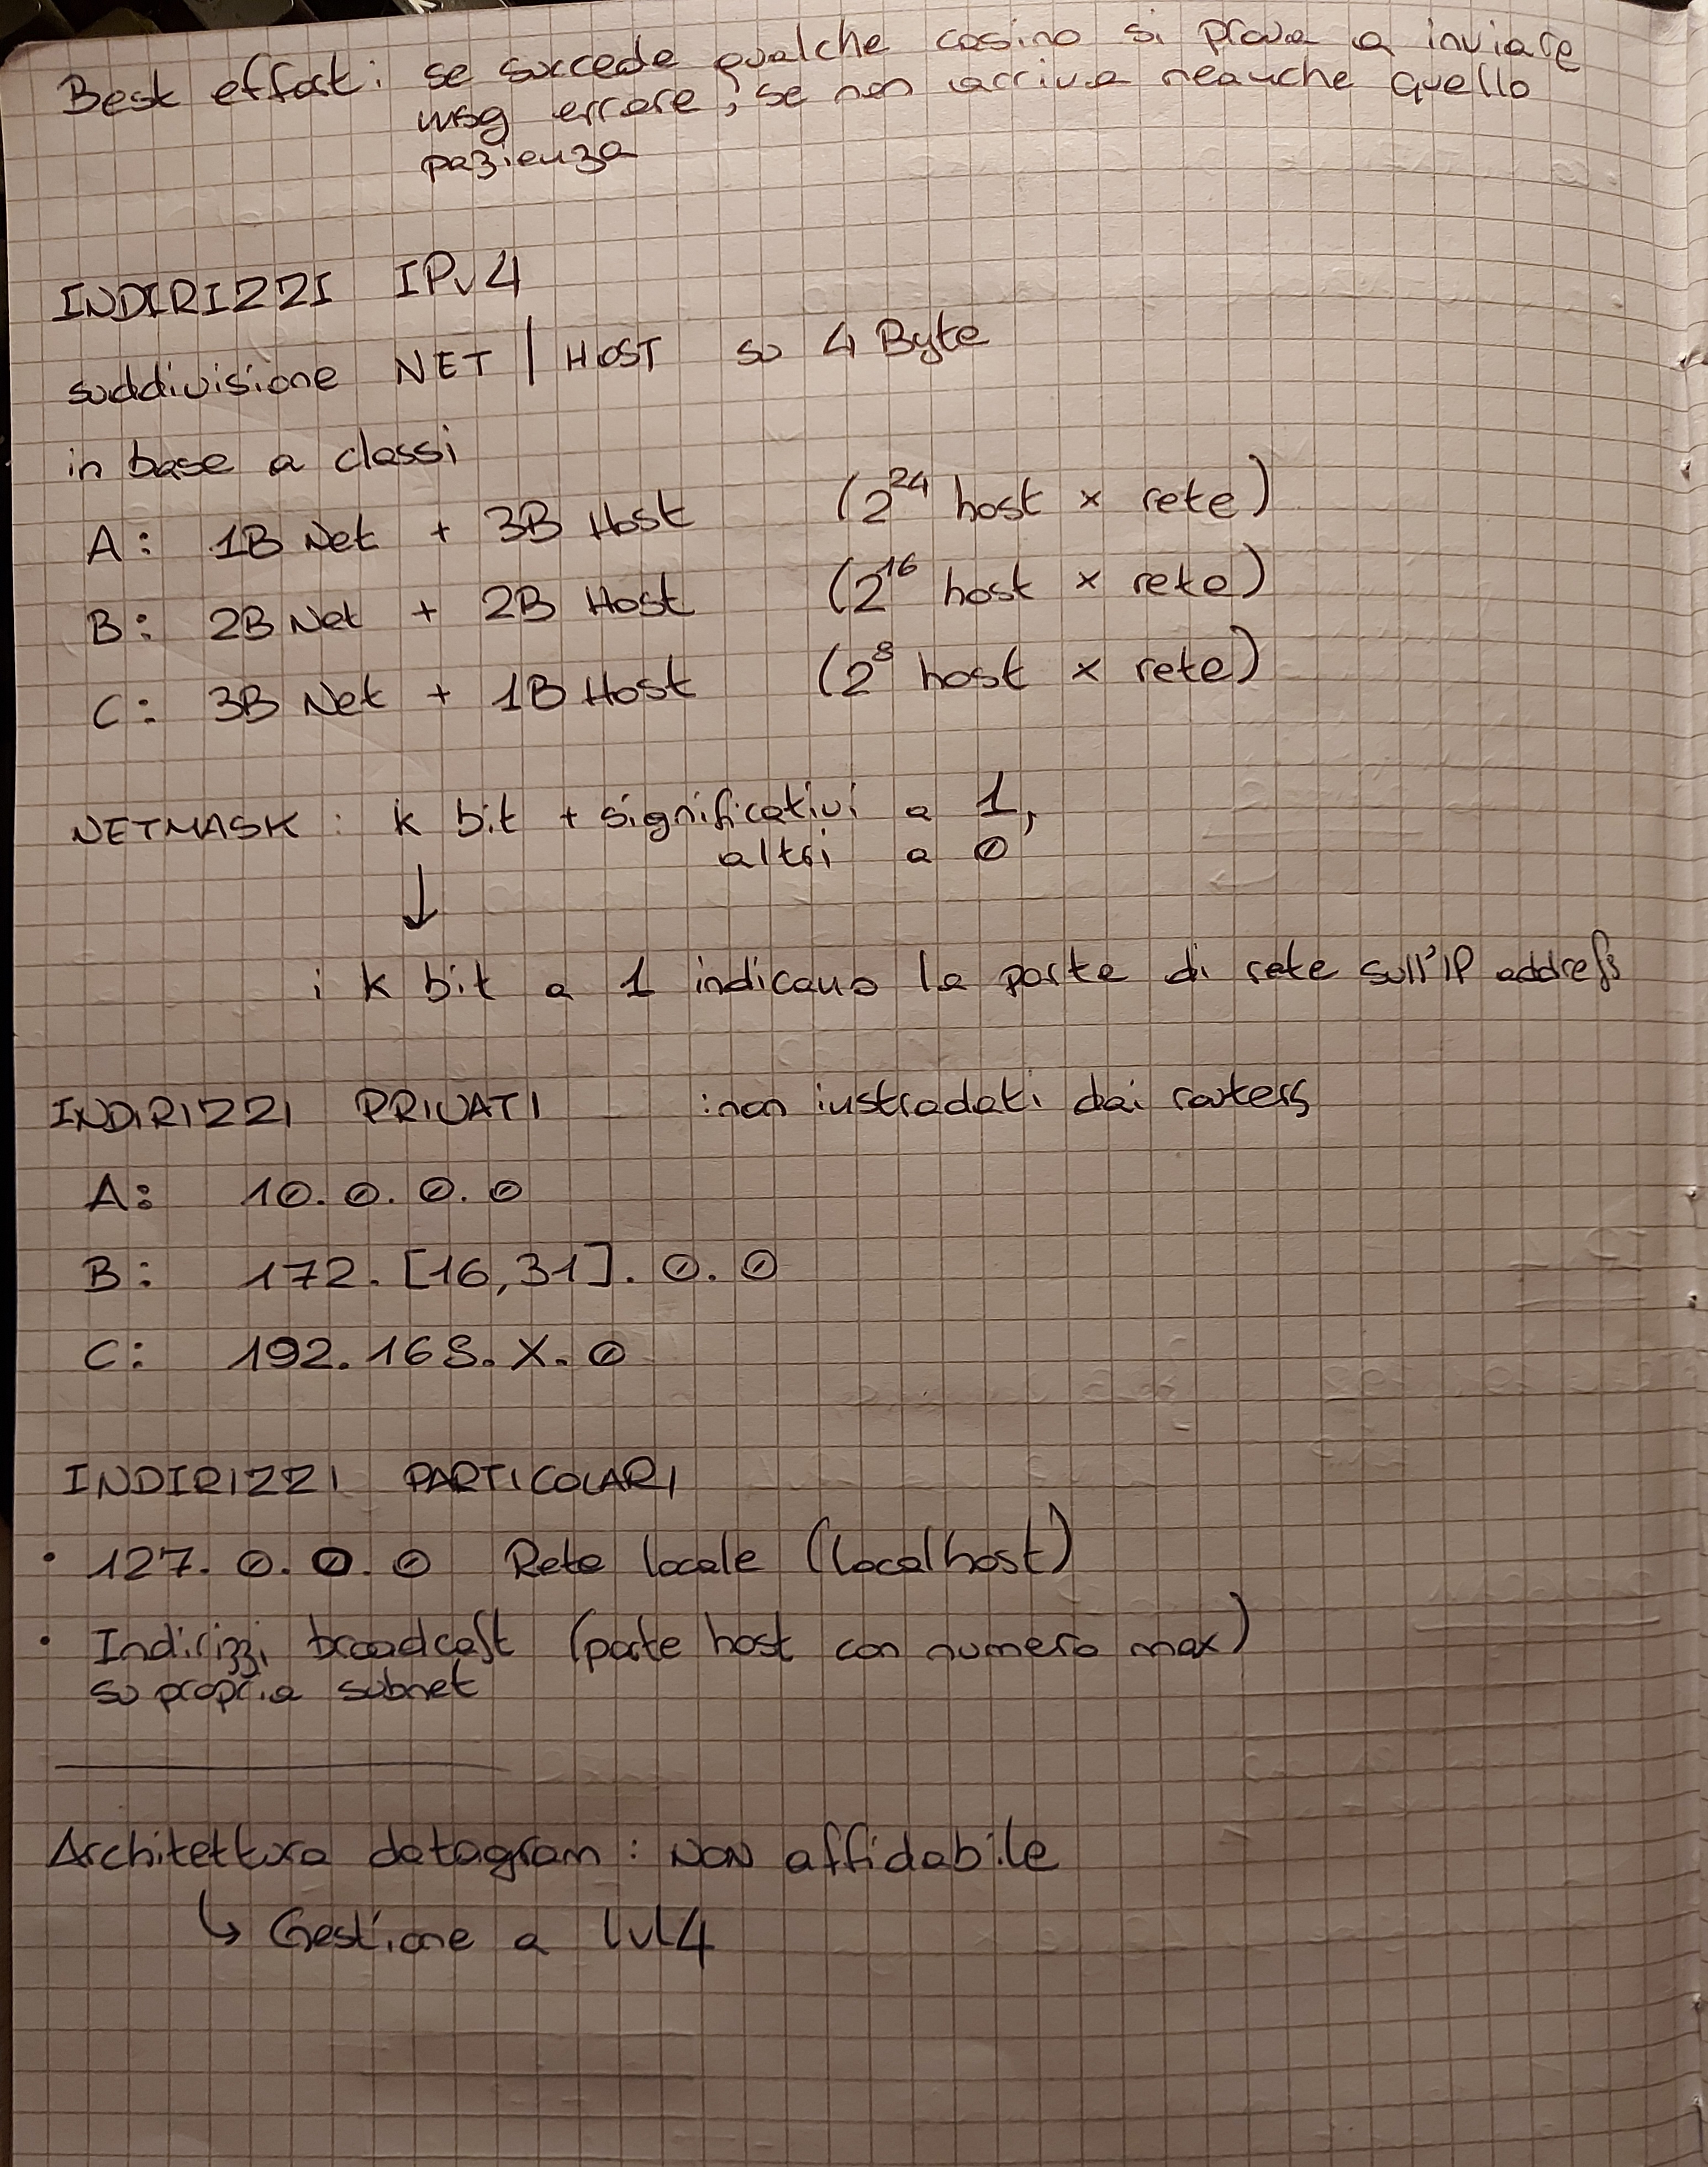 Best effort: se succede qualche casino si prova a inviare
msg errore, se non arriva neanche quello
pazienza
INDIRIZZI IPv4
suddivisione NET | HOST su 4 Byte
in base a classi
A: 1B Net + 3B Host (2^24 host x rete)
B: 2B Net + 2B Host (2^16 host x rete)
C: 3B Net + 1B Host (2^8 host x rete)
NETMASK: k bit + significativi a 1,
altri a 0
↓
i k bit a 1 indicano la parte di rete sull'IP address
INDIRIZZI PRIVATI : non instradati dai routers
A: 10.0.0.0
B: 172.[16,31].0.0
C: 192.168.X.0
INDIRIZZI PARTICOLARI
• 127.0.0.0 Rete locale (localhost)
• Indirizzi broadcast (parte host con numero max)
su propria subnet
Architettura datagram: NON affidabile
↳ Gestione a lvl4